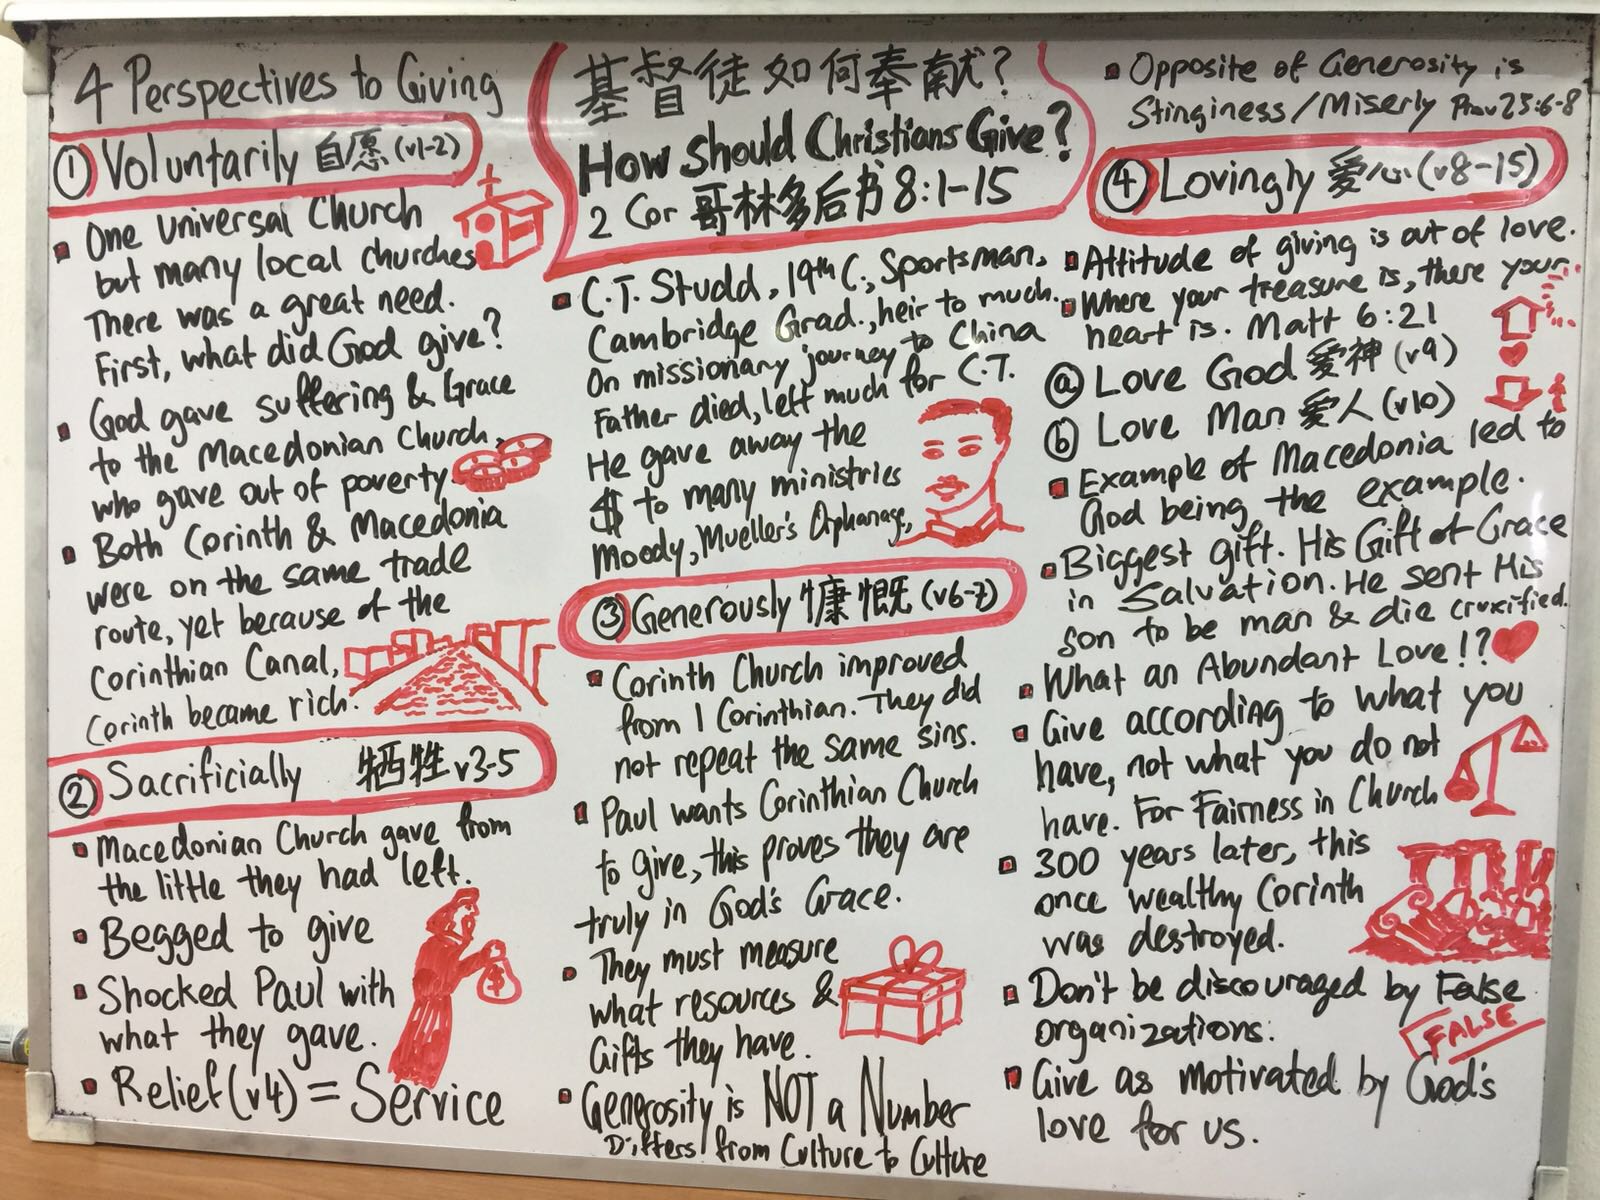 4 Perspectives to Giving
① Voluntarily 自愿 (v1-2)
One universal Church
but many local churches
There was a great need.
First, what did God give?
God gave suffering & Grace
to the Macedonian Church,
who gave out of poverty.
Both Corinth & Macedonia
were on the same trade
route, yet because of the
Corinthian Canal,
Corinth became rich.
② Sacrificially 牺牲 v3-5
Macedonian Church gave from
the little they had left.
Begged to give
Shocked Paul with
what they gave.
Relief (v4) = Service
$
基督徒如何奉献?
How should Christians Give?
2 Cor 哥林多后书 8:1-15
C.T. Studd, 19th C., Sportsman,
Cambridge Grad., heir to much.
On missionary journey to China
Father died, left much for C.T.
He gave away the
$ to many ministries
Moody, Mueller's Orphanage,
③ Generously 慷慨 (v6-7)
Corinth Church improved
from 1 Corinthian. They did
not repeat the same sins.
Paul wants Corinthian Church
to give, this proves they are
truly in God's Grace.
They must measure
what resources &
Gifts they have.
Generosity is NOT a Number
Differs from Culture to Culture
Opposite of Generosity is
Stinginess/Miserly Prov 23:6-8
④ Lovingly 爱心 (v8-15)
Attitude of giving is out of love.
Where your treasure is, there your
heart is. Matt 6:21
ⓐ Love God 爱神 (v9)
ⓑ Love Man 爱人 (v10)
Example of Macedonia led to
God being the example.
Biggest gift. His Gift of Grace
in Salvation. He sent His
son to be man & die crucified.
What an Abundant Love!?
Give according to what you
have, not what you do not
have. For Fairness in Church
300 years later, this
once wealthy Corinth
was destroyed.
Don't be discouraged by False
organizations.
FALSE
Give as motivated by God's
love for us.